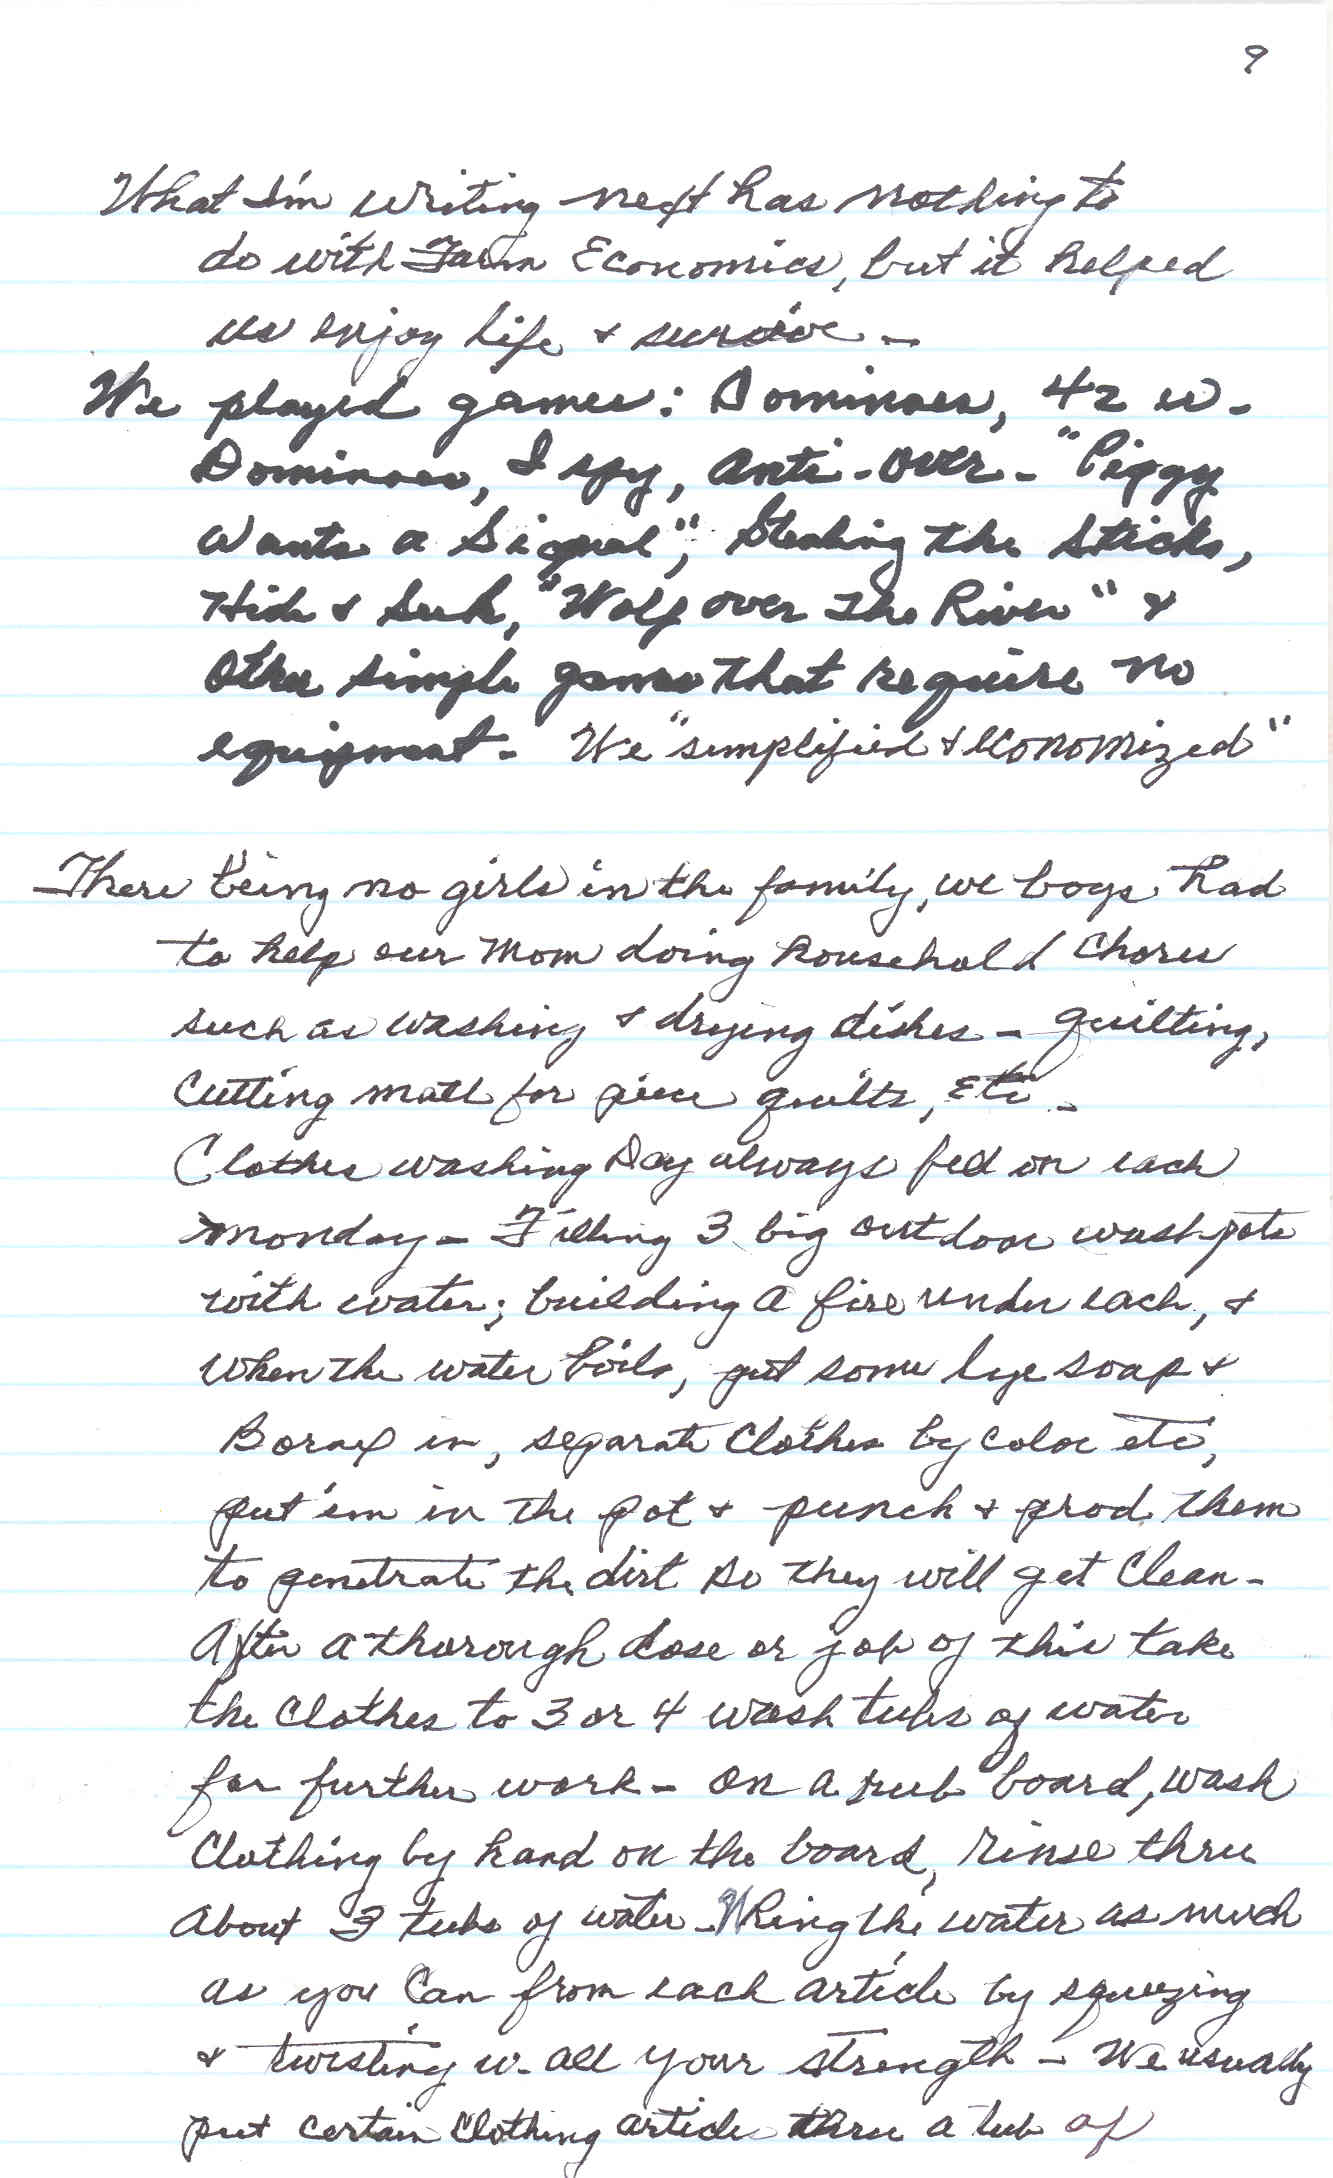 9
What I'm writing next has nothing to
do with Farm Economics, but it helped
us enjoy life & survive –
We played games: Dominoes, 42 w-
Dominoes, I spy, Anti-over - "Piggy
Wants a Signal", Stealing the Sticks,
Hide & Seek, "Wolf over the River" &
other simple games that require no
equipment - We "simplified & economized"
There being no girls in the family, we boys had
to help our Mom doing household chores
such as washing & drying dishes – quilting,
cutting matl for piece quilts, etc –
Clothes washing Day always fell on each
Monday – Filling 3 big outdoor wash pots
with water; building a fire under each, &
when the water boils, put some lye soap &
Borax in, separate clothes by color etc,
put 'em in the pot & punch & prod them
to penetrate the dirt so they will get clean –
After a thorough dose or job of this take
the clothes to 3 or 4 wash tubs of water
for further work – on a rub board, wash
clothing by hand on the board, rinse thru
about 3 tubs of water – Wring the water as much
as you can from each article by squeezing
& twisting w- all your strength – We usually
put certain clothing articles thru a tub of